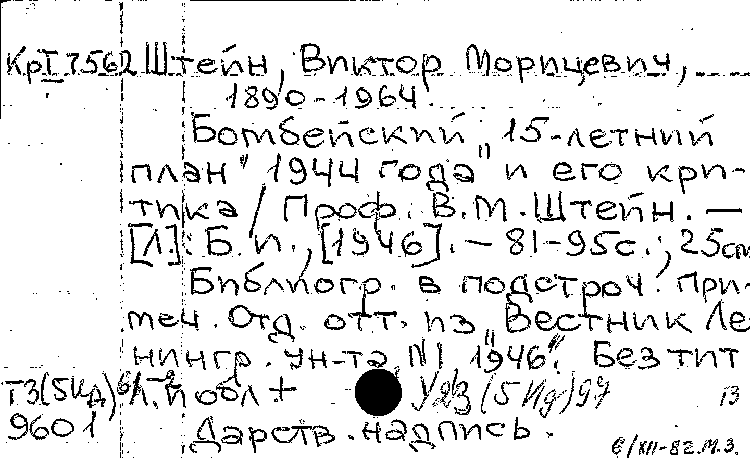 КрI 7562 Штейн, Виктор Морицевич,
1890-1964.
Бомбейский „15-летний
план" 1944 года" и его кри-
тика / Проф. В.М.Штейн. —
[Л.]: Б.и., [1946]. — 81-95с.; 25см
Библиогр. в подстроч. При-
меч. Отд. отт. из „Вестник Ле-
нингр. ун-та, №1 1946". Без тит
Т3(5Ид) л. и обл.+ У9з(5Ид)97 13
9601 Дарств. надпись.
6/XII-82.М.З.